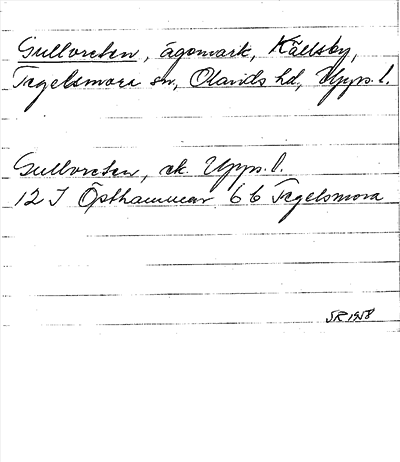 Gullvreten, ägomark, Källsby,
Tegelsmora sn, Olands hd, Upps. l.
Gullvreten, ek. Upps. l.
12 I Östhammar 6 b Tegelsmora
SR 1958